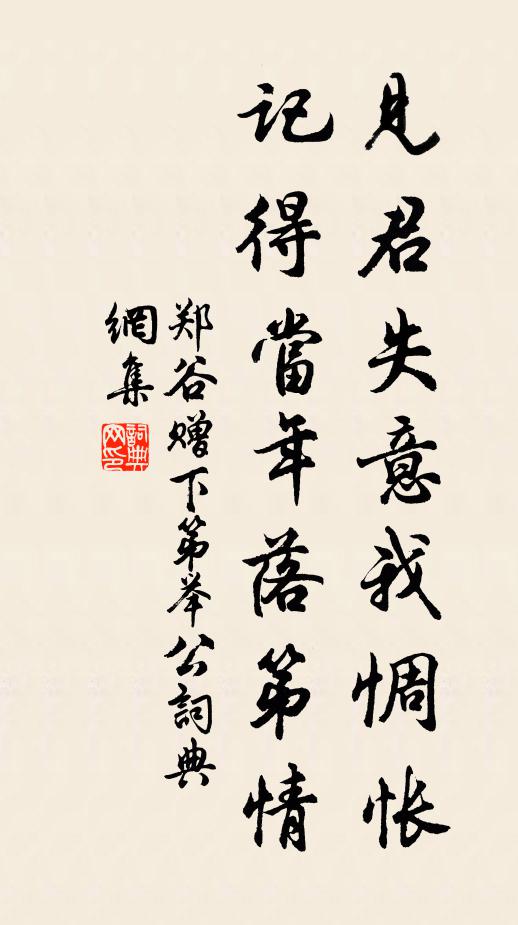 见君失意我惆怅
记得當年落第情
郑谷赠下第举公詞典
網集
詞典网印